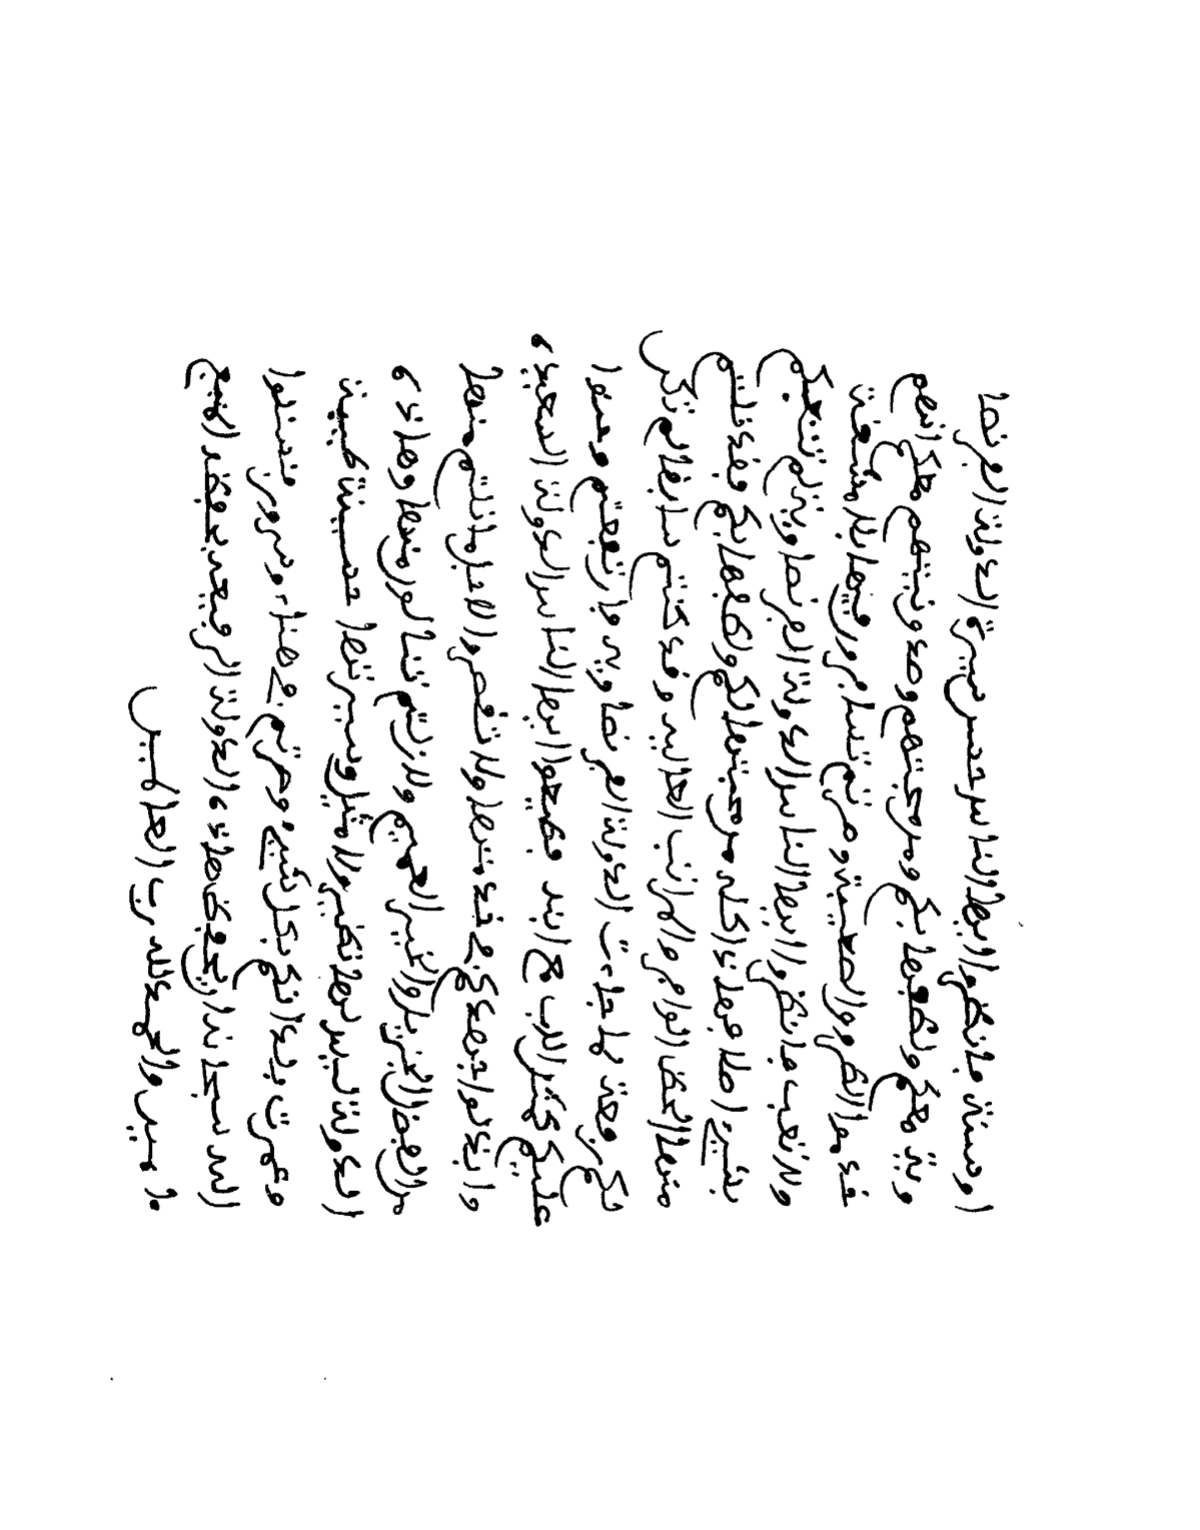 اوسنة فانظروا ايها الناس حسن سيرة الدولة الفرنصا
وية معكم ولطفها بكم ومن محبتهم وصدق نيتهم معكم انهم
قدموا الطرق والصعيبة وصرتم تسافرون فيها بلا مشقة
ولا تعب فانظروا ايها الناس الدولة الفرنصاوية لم تنفعكم
بشيء اصلا فهذا كله من محبتها لكم ولطفها بكم وقد نلتم
منها الحظ الوافر والمراتب العالية وقد كنتم سابقا لم تكن
لكم رفعة لما جاءت الدولة الفرنصاوية فارتفعتم
عليكم كمثل الاب مع ابنه ايها الناس الدولة السعيدة
وابذلوا جهدكم في خدمتها ولا تقصروا لاجل ما نلتم منها
من الفضل الجزيل والخير العميم ولا زلتم تنالون منها وهاذه
الدولة ليس لها نظير ولا مثيل وسيرتها حسينة طيبة
وعمرت بلدانكم بكل شيء وصرتم في هناء وسرور نسئلوا
الله سبحانه ان يحفظ هاذه الدولة الرفيعة بحفظه المنيع
ءامين والحمد لله رب العالمين